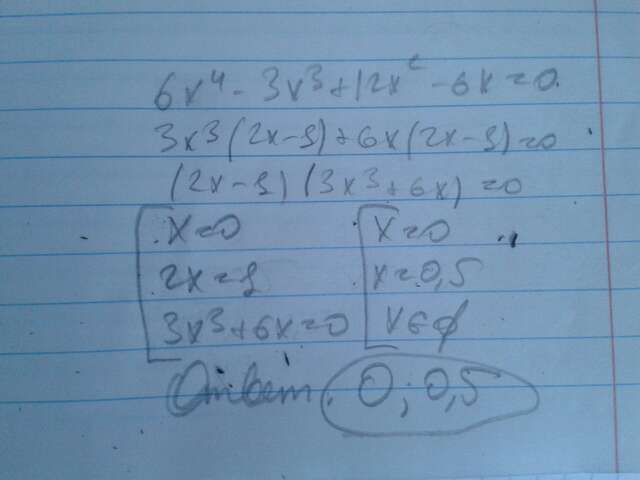 6x⁴ - 3x³ + 12x² - 6x = 0.
3x³(2x-1) + 6x(2x-1) = 0
(2x-1)(3x³+6x) = 0
x=0 x=0
2x=1 x=0,5
3x³+6x=0 x∈φ
Ответ: 0; 0,5